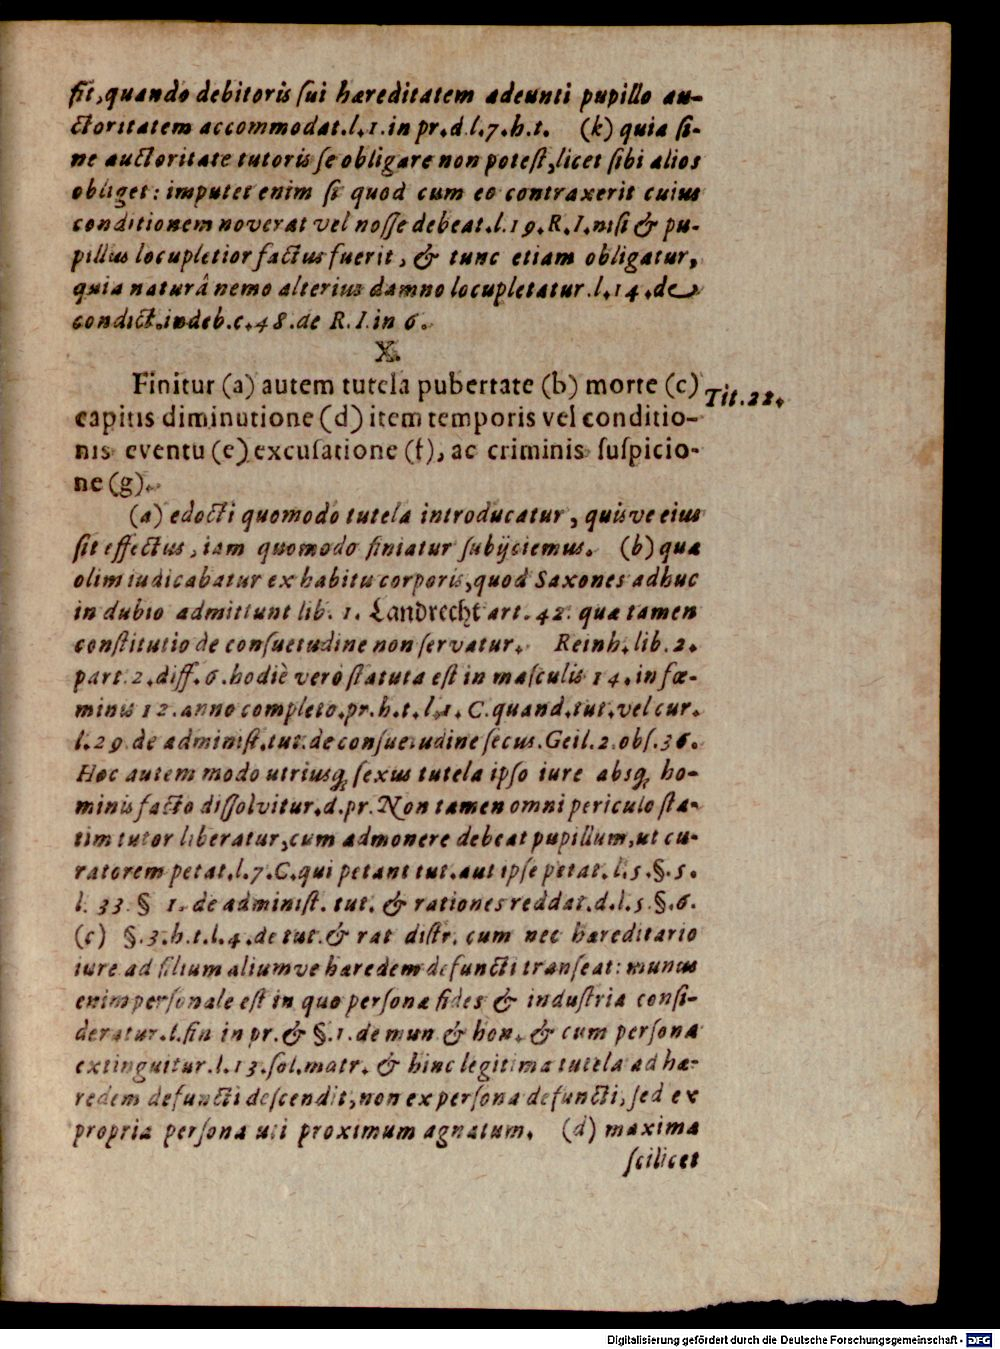 fit, quando debitoris ſui hæreditatem adeunti pupillo au-
ctoritatem accommodat. l. 1. in pr. d. l. 7. h. t. (k) quia ſi-
ne auctoritate tutoris ſe obligare non poteſt, licet ſibi alios
obliget: imputet enim ſi quod cum eo contraxerit cuius
conditionem noverat vel noſſe debeat. l. 19. R. I. niſi & pu-
pillus locupletior factus fuerit, & tunc etiam obligatur,
quia naturâ nemo alterius damno locupletatur. l. 14. de
condict. indeb. c. 48. de R. I. in 6.
X.
Finitur (a) autem tutela pubertate (b) morte (c)
Tit. 22.
capitis diminutione (d) item temporis vel conditio-
nis eventu (e) excuſatione (f), ac criminis ſuſpicio-
ne (g).
(a) edocti quomodo tutela introducatur, quisve eius
ſit effectus, iam quomodo finiatur ſubijciemus. (b) quæ
olim iudicabatur ex habitu corporis, quod Saxones adhuc
in dubio admittunt lib. 1. Landrecht art. 42. quæ tamen
conſtitutio de conſuetudine non ſervatur. Reinh. lib. 2.
part. 2. diff. 6. hodiè vero ſtatuta eſt in maſculis 14. in fœ-
minis 12. anno completo. pr. h. t. l. 1. C. quand. tut. vel cur.
l. 29. de adminiſt. tut. de conſuetudine ſecus. Geil. 2. obſ. 36.
Hoc autem modo utriusq́ ſexus tutela ipſo iure absq́ ho-
minis facto diſſolvitur. d. pr. Non tamen omni periculo ſta-
tim tutor liberatur, cum admonere debeat pupillum, ut cu-
ratorem petat. l. 7. C. qui petant tut. aut ipſe petat. l. 5. §. 5.
l. 33 § 1. de adminiſt. tut. & rationes reddat. d. l. 5. §. 6.
(c) §. 3. h. t. l. 4. de tut. & rat diſtr. cum nec hæreditario
iure ad filium aliumve hæredem defuncti tranſeat: munus
enim perſonale eſt in quo perſonæ fides & induſtria conſi-
deratur. l. fin in pr. & §. 1. de mun & hon. & cum perſona
extinguitur. l. 13. ſol. matr. & hinc legitima tutela ad hæ-
redem defuncti deſcendit, non ex perſona defuncti, ſed ex
propria perſona uti proximum agnatum. (d) maxima
ſcilicet
Digitalisierung gefördert durch die Deutsche Forschungsgemeinschaft - DFG